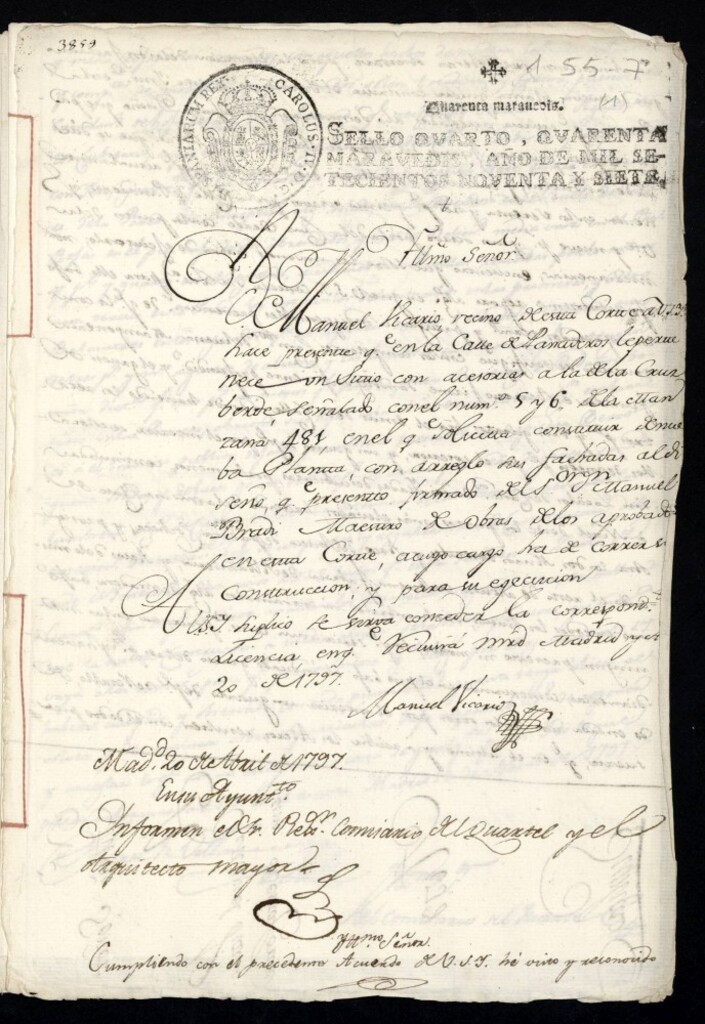 3859
1 55 7
(1)
HISPANIARUM REX CAROLUS IV D G
Quarenta maravedis.
SELLO QVARTO, QVARENTA
MARAVEDIS, AÑO DE MIL SE-
TECIENTOS NOVENTA Y SIETE.
Yllmo Señor
Manuel Vicario vecino de esta Corte a V.S.Y.
hace presente q.e en la Calle de Panaderos le perte
nece un sitio con acesorias a la de la Cruz
berde señalado con el num.o 5 y 6 de la Man
zana 481 en el q.e solicita construir de nue
ba Planta, con arreglo sus fachadas al di
seño, q.e presento firmado del S.or Dn Manuel
Bradi Maestro de Obras de los aprobados
en esta Corte, a cuyo cargo ha de correr su
Construccion, y para su egecucion
A V.S.Y. suplico se sirva conceder la correspond.te
Licencia, en q.e Recivirá mrd Madrid y
20 de 1797.
Manuel Vicario
Mad.d 20 de Abril de 1797.
En su Ayunt.to
Informen el Sr. Reg.or Comisario del Quartel y el
Arquitecto mayor
Yttmo. Señor
Cumpliendo con el precedente Acuerdo de V.S.Y. hé visto y reconocido